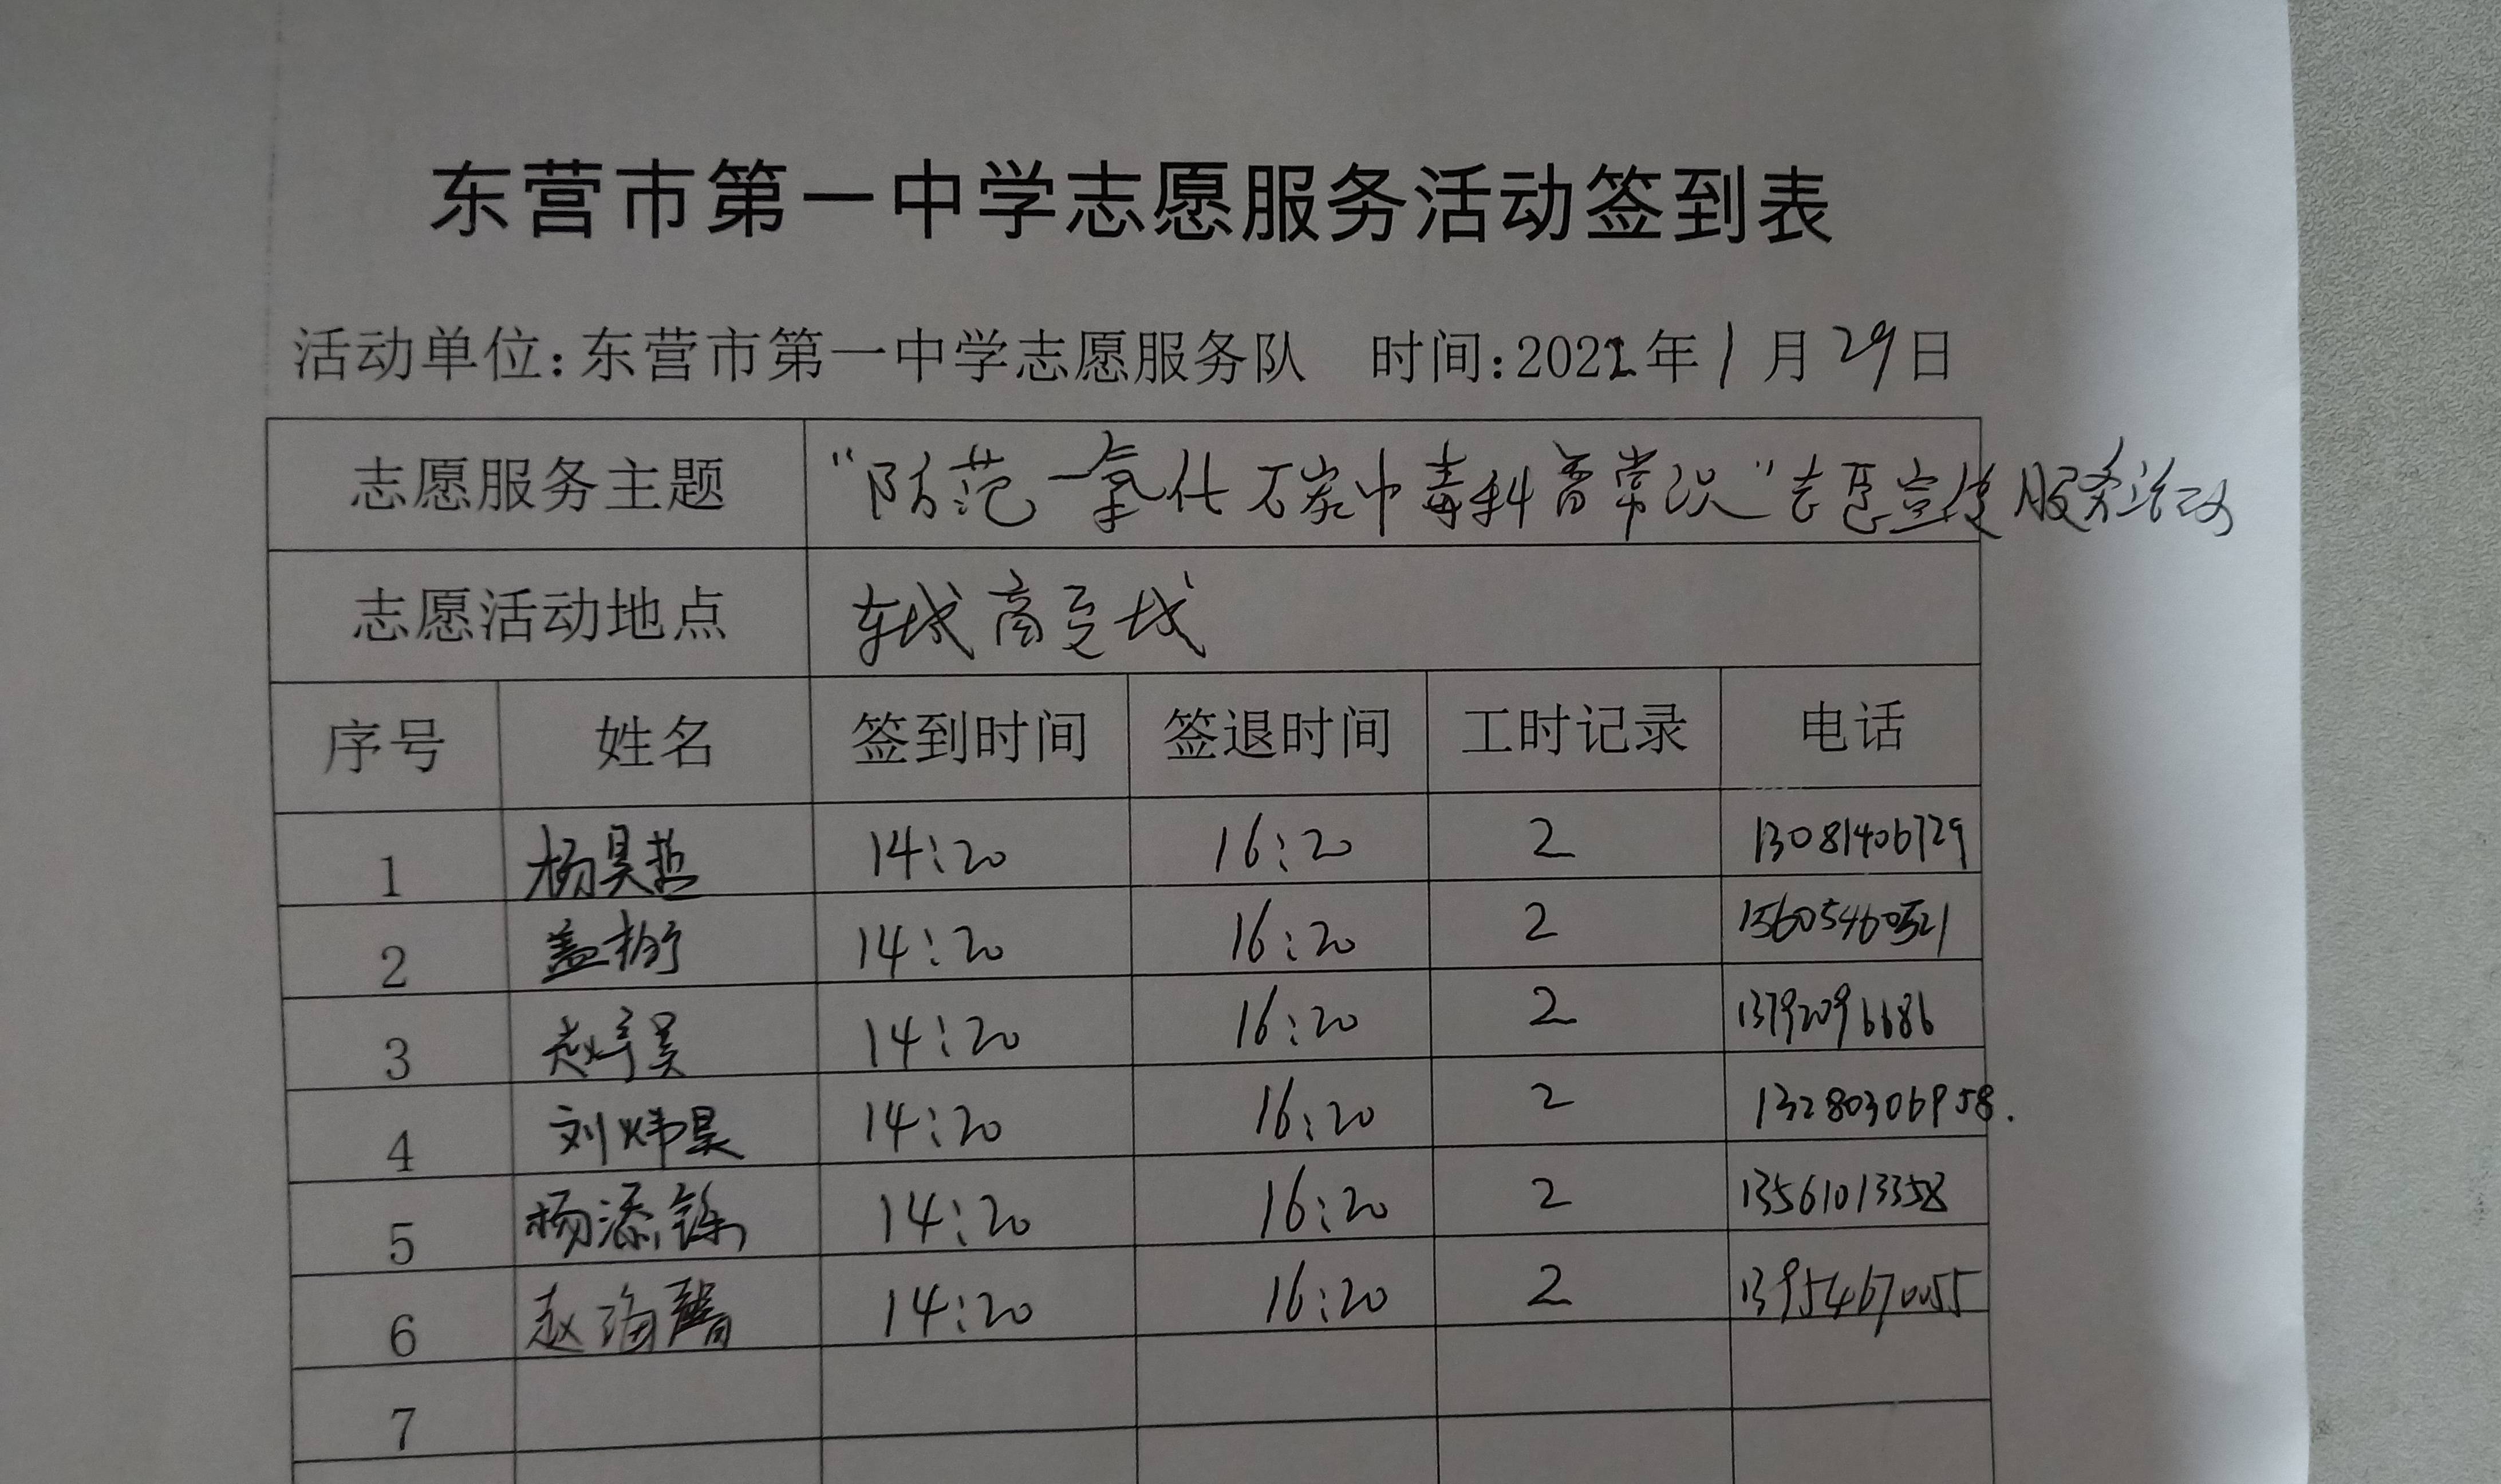 东营市第一中学志愿服务活动签到表
活动单位:东营市第一中学志愿服务队 时间:2022年1月29日
志愿服务主题 “防范一氧化碳中毒科普常识”志愿宣传服务活动
志愿活动地点 东城商贸城
序号 姓名 签到时间 签退时间 工时记录 电话
1 杨昊哲 14:20 16:20 2 13081406729
2 盖 14:20 16:20 2 15605460521
3 赵宇昊 14:20 16:20 2 13792096686
4 刘炜昊 14:20 16:20 2 13280306958.
5 杨添铄 14:20 16:20 2 13561013358
6 赵海馨 14:20 16:20 2 13954670055
7